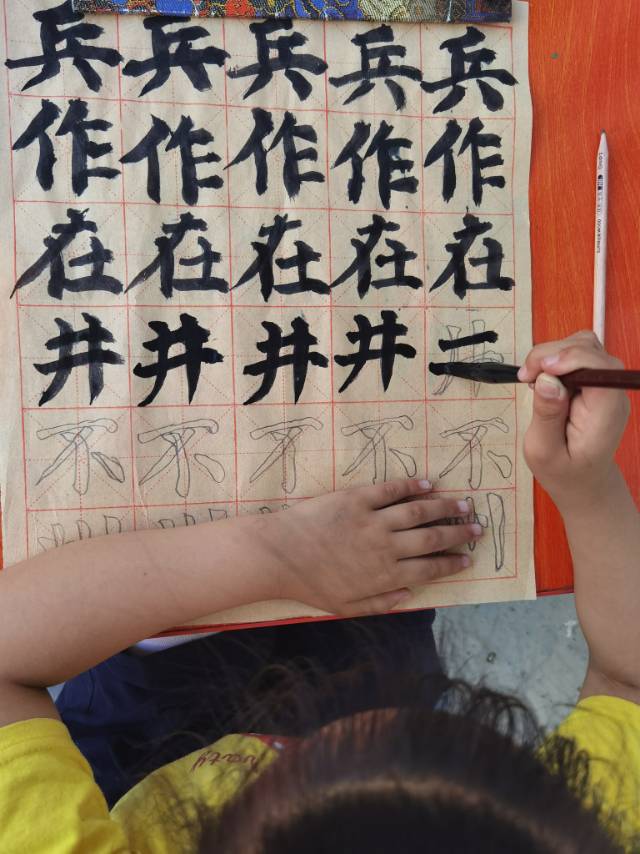 兵兵兵兵兵
作作作作作
在在在在在
井井井井井
不不不不不